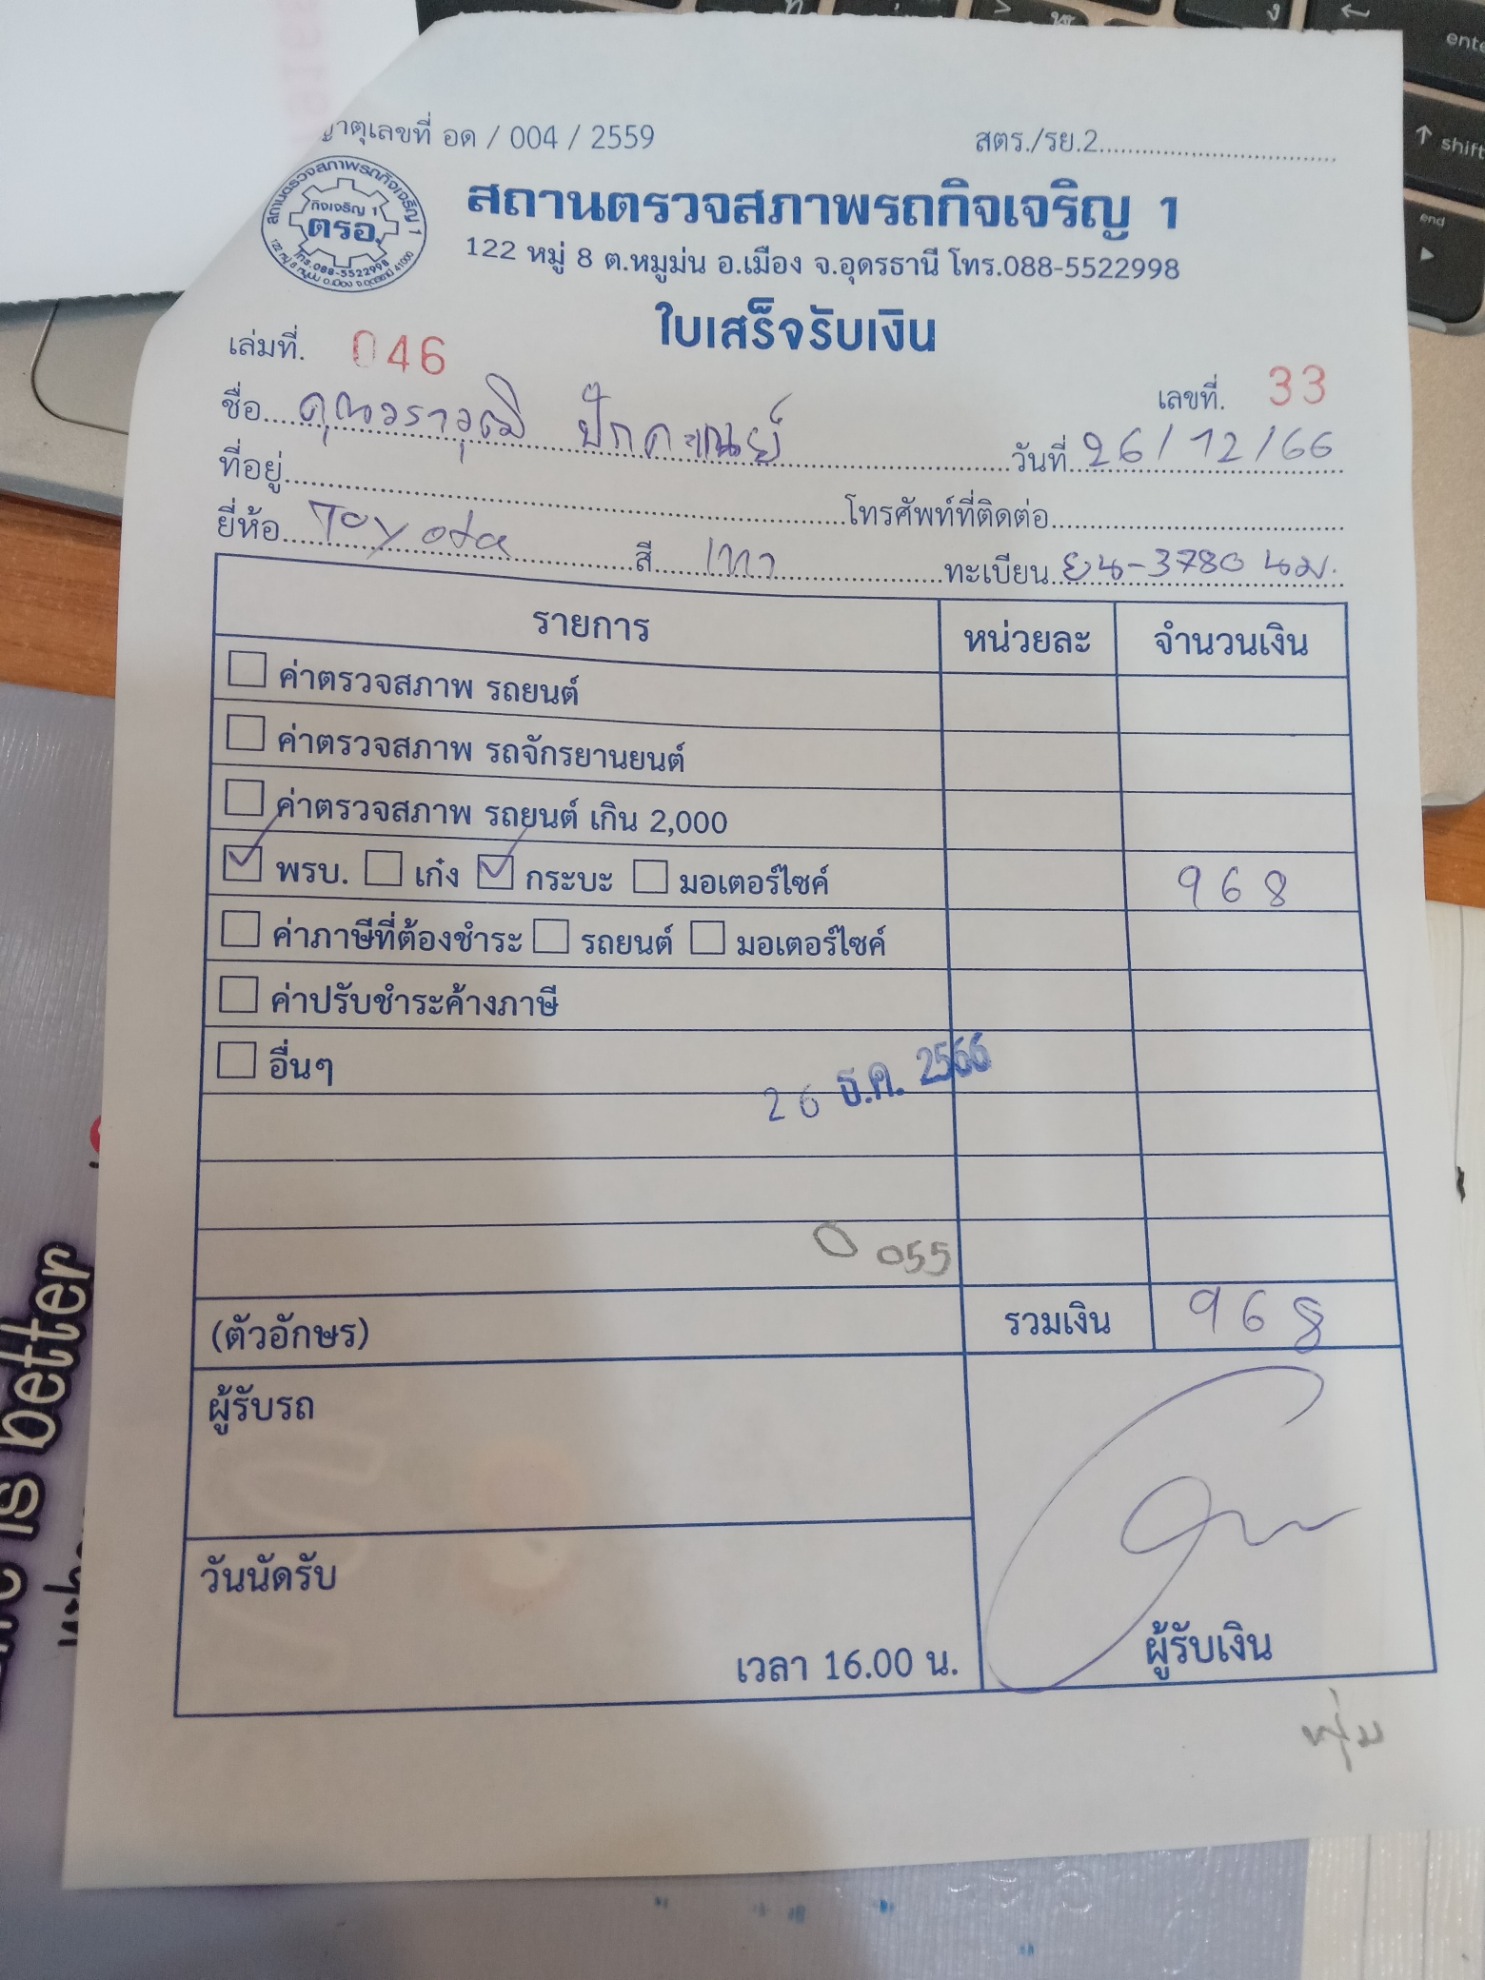 ญาตเลขที่ อด / 004 / 2559
สตร./รย.2
สถานตรวจสภาพรถกิจเจริญ 1
กิจเจริญ 1
ตรอ.
โทร.088-5522998
122 หมู่ 8 ต.หมูม่น อ.เมือง จ.อุดรธานี 41000
สถานตรวจสภาพรถกิจเจริญ 1
122 หมู่ 8 ต.หมูม่น อ.เมือง จ.อุดรธานี โทร.088-5522998
ใบเสร็จรับเงิน
เล่มที่. 046
เลขที่. 33
ชื่อ คุณวราวุฒิ
วันที่ 26/12/66
ที่อยู่ โทรศัพท์ที่ติดต่อ
ยี่ห้อ Toyota สี เทา ทะเบียน ยน-3780 นม.
รายการ หน่วยละ จำนวนเงิน
ค่าตรวจสภาพ รถยนต์
ค่าตรวจสภาพ รถจักรยานยนต์
ค่าตรวจสภาพ รถยนต์ เกิน 2,000
พรบ. เก๋ง กระบะ มอเตอร์ไซค์ 968
ค่าภาษีที่ต้องชำระ รถยนต์ มอเตอร์ไซค์
ค่าปรับชำระค้างภาษี
อื่นๆ
26 ธ.ค. 2566
055
(ตัวอักษร) รวมเงิน 968
ผู้รับรถ
วันนัดรับ
เวลา 16.00 น.
ผู้รับเงิน
is better
enter
shift
end